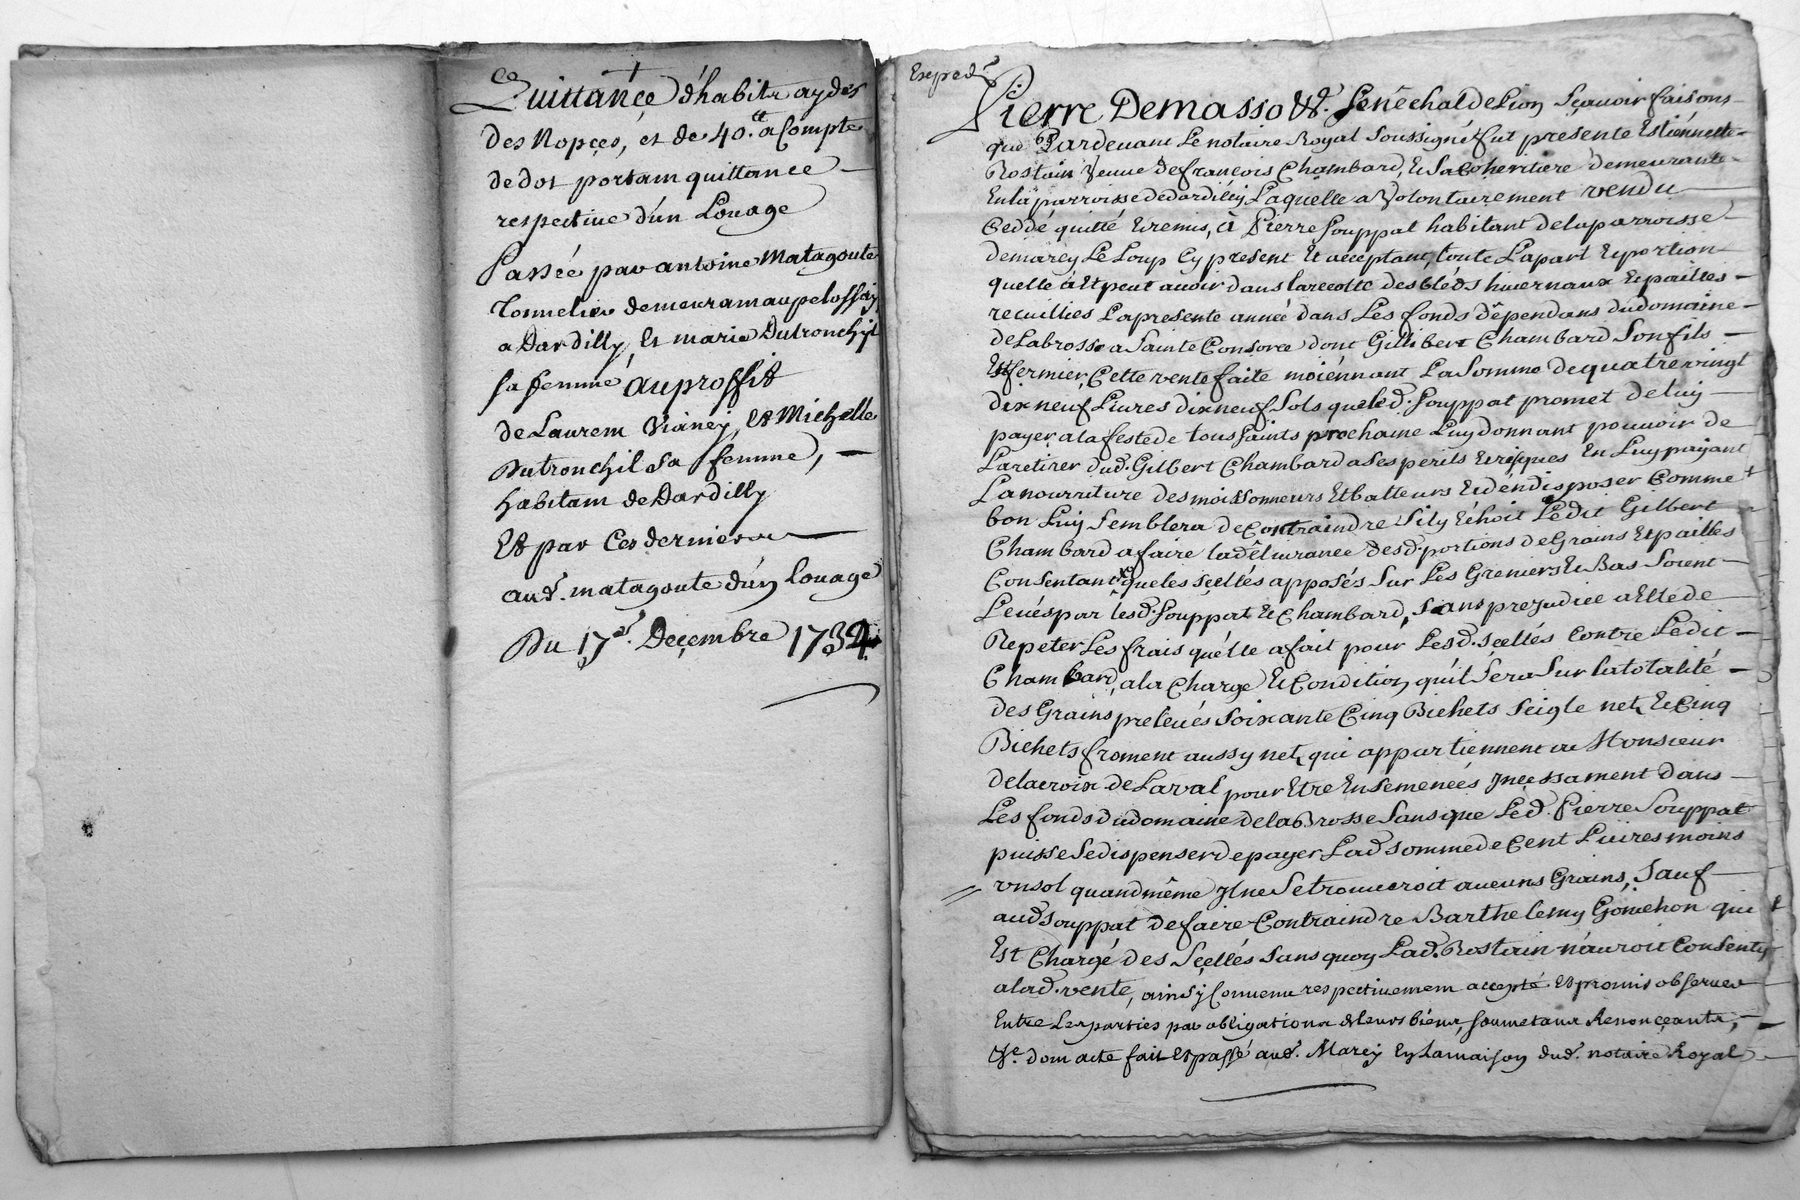 Quittance d'habitz aydes
des Nopçes, et de 40.tt a Compte
de dot portant quittance
respective d'un Louage
Passée par antoine Matagoute
Tonnelier demeurant au pelossay
a Dardilly, Et marie Dutronchil
sa femme au proffit
de Laurent Vianey, Et Michelle
Dutronchil sa femme,
habitans de Dardilly
Et par Ces derniers
aud. matagoute d'un louage
Du 17e. Deçembre 1734
Exped.
Pierre Demasso &c. Senéchal de Lion Sçavoir faisons
que Pardevant Le notaire Royal Soussigné fut presente Estiennette
Rostain Veuve de françois Chambard, & Sa Coheritiere demeurante
En la parroisse de dardilly Laquelle a Volontairement vendu
Ceddé quitté & remis, à Pierre Souppat habitant de la parroisse
de marcy Le Loup Cy present Et acceptant, toute La part & portion
quelle à Et peut avoir dans la recolte des bléds hivernaux & pailles
recuillies La presente année dans Les fonds dépendans du domaine
de Labrosse a Sainte Consorce dont Gillibert Chambard Son fils
Est fermier, Cette vente faite moiénnant La Somme de quatrevingt
dix neuf Livres dix neuf Sols que led. Souppat promet de luy
payer a la feste de toussaints prochaine Luy donnant pouvoir de
La retirer dud. Gilbert Chambard a Ses perils & risques En Luy païant
La nourriture des moissonneurs Et batteurs & d'én disposer Comme
bon Luy Semblera de Contraindre S'il y Echoit Ledit Gilbert
Chambard a faire la délivrance desd. portions de Grains Et pailles
Consentant que les sçéllés apposés Sur Les Greniers & Bas Soient
Levés par lesd. Souppat & Chambard, Sans prejudice a Elle de
Repeter Les frais qu'élle a fait pour Lesd. sçellés Contre Ledit
Chambard, a la Charge & Condition qu'il Sera Sur la totalité
des Grains prelevés Soixante Cinq Bichets Seigle net, & Cinq
Bichets froment aussy net, qui appartiennent au Monsieur
delacroix de Laval pour Etre Ensemencés Incessament dans
Les fonds du domaine de la Brosse Sans que Led. Pierre Souppat
puisse Se dispenser de payer Lad. somme de Cent Livres moins
un sol quand même Il ne Se trouveroit aucuns Grains, Sauf
aud. Souppat de faire Contraindre Barthelemy Goncehon qui
Est Chargé des Sçellés Sans quoy Lad. Rostain n'auroit Consenty
a lad. vente, ainsy Convenu respectivement accepté Et promis observer
Entre Les parties par obligation de leurs biens, soumetans Renonçeants,
&c. dont acte fait Et passé aud. Marcy En La maison dud. notaire Royal